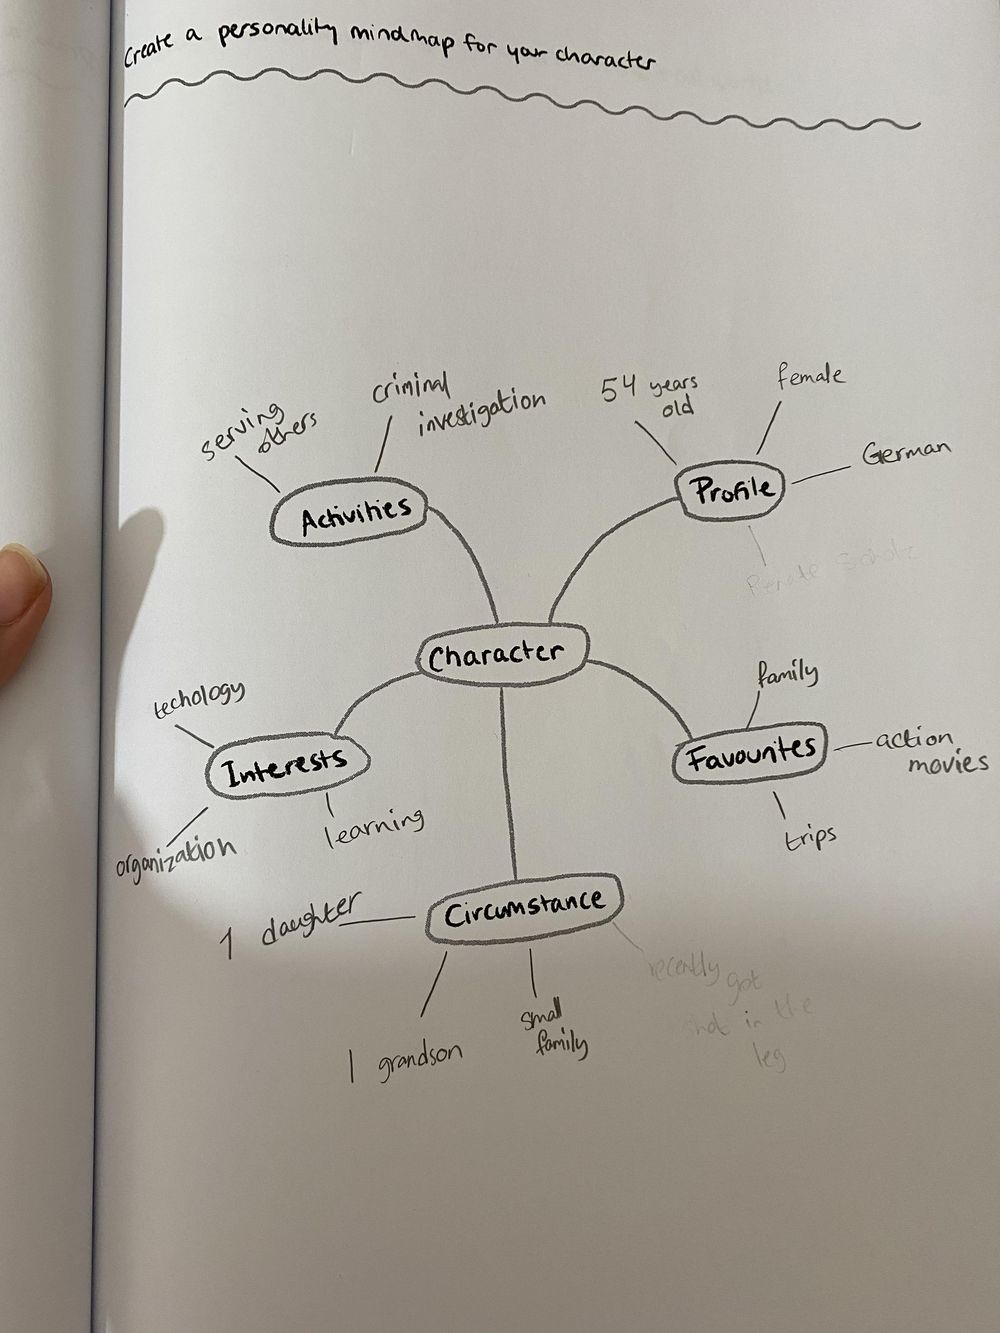 Create a personality mindmap for your character
serving
others
criminal
investigation
Activities
54 years
old
female
German
Profile
Renate Scholz
Character
techology
Interests
organization
learning
family
Favourites
action
movies
trips
Circumstance
1 daughter
1 grandson
small
family
recently got
shot in the
leg